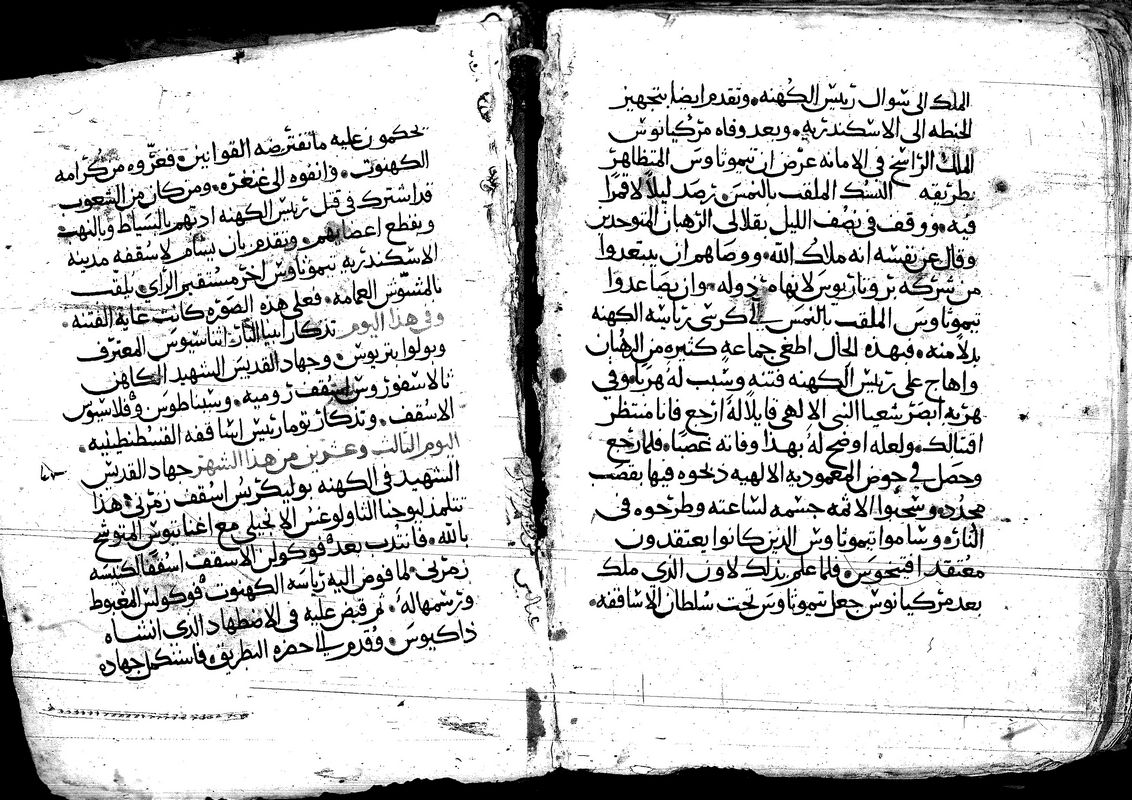 الملك الى سوال رييس الكهنه. وتقدم ايضا بتجهيز
الحنطه الى الاسكندريه. وبعد وفاه مركيانوس
الملك الراسخ في الامانه عرض ان تيموثاوس المتظاهر
بطريقه النسك الملقب بالنمس رصد ليلاً لا قمرا
فيه. ووقف في نصف الليل بقلالي الرهبان المتوحدين
وقال عن نفسه انه ملاك الله. ووصاهم ان يبتعدوا
من شركه بروتاريوس لانها مرذوله. وان يصاعدوا
تيموثاوس الملقب بالنمس الي كرسي رياسه الكهنه
بدلاً منه. فبهذه الحال اطغى جماعه كثيره من الرهبان
واهاج على رييس الكهنه فتنه وسبب له هربا. وفي
هربه ابصر شعيا النبى الالهي قايلاً له ارجع فانا منتظر
اقتبالك. ولعله اوضح له بهذا وفاته غصبًا. فلما رجع
وحصل في حوض المعموديه الالهيه دخوه فيها بقصب
محدد. وسحبوا الاثمه جسمه لساعته وطرحوه في
النار. وساموا تيموثاوس الدين كانوا يعتقدون
معتقد اوتيخوس. فلما علم بذلك لاون الذي ملك
بعد مركيانوس جعل تيموثاوس تحت سلطان الاساقفه.
يحكمون عليه ما تفترضه القوانين. فعروه من كرامه
الكهنوت. وانفوه الى غنغره. ومن كان من الشعوب
قد اشترك في قتل رييس الكهنه ادبهم بالسياط وبالنهب
وبقطع اعضايهم. وتقدم بان يسام لاسقفه مدينه
الاسكندريه تيموثاوس اخر مستقيم الراي يلقب
بالمشوش العمامه. فعلى هذه الصوره كانت غايه الفتنه.
وفي هذا اليوم تذكار ابينا البار اثناسيوس المعترف
وبولوا بتريوس. وجهاد القديس الشهيد الكاهن
اسقف روميه.
الاسقف. وتذكار توما رئيس اساقفه القسطنطينيه.
اليوم الثالث وعشرين من هذا الشهر جهاد القديس
الشهيد في الكهنه بوليكربس اسقف زمرني. هذا
تتلمذ ليوحنا الثاولوغس الانجيلي مع اغناتيوس المتوشح
بالله. فانتدب بعد فوكولس الاسقف اسقفًا لكنيسه
زمرني. لما فوض اليه رياسه الكهنوت فوكولس المغبوط
ورسمها له. ثم قبض عليه في الاضطهاد الذي انشاه
ذاكيوس. وقدم الي حضره البطريق. فاستكمل جهاده